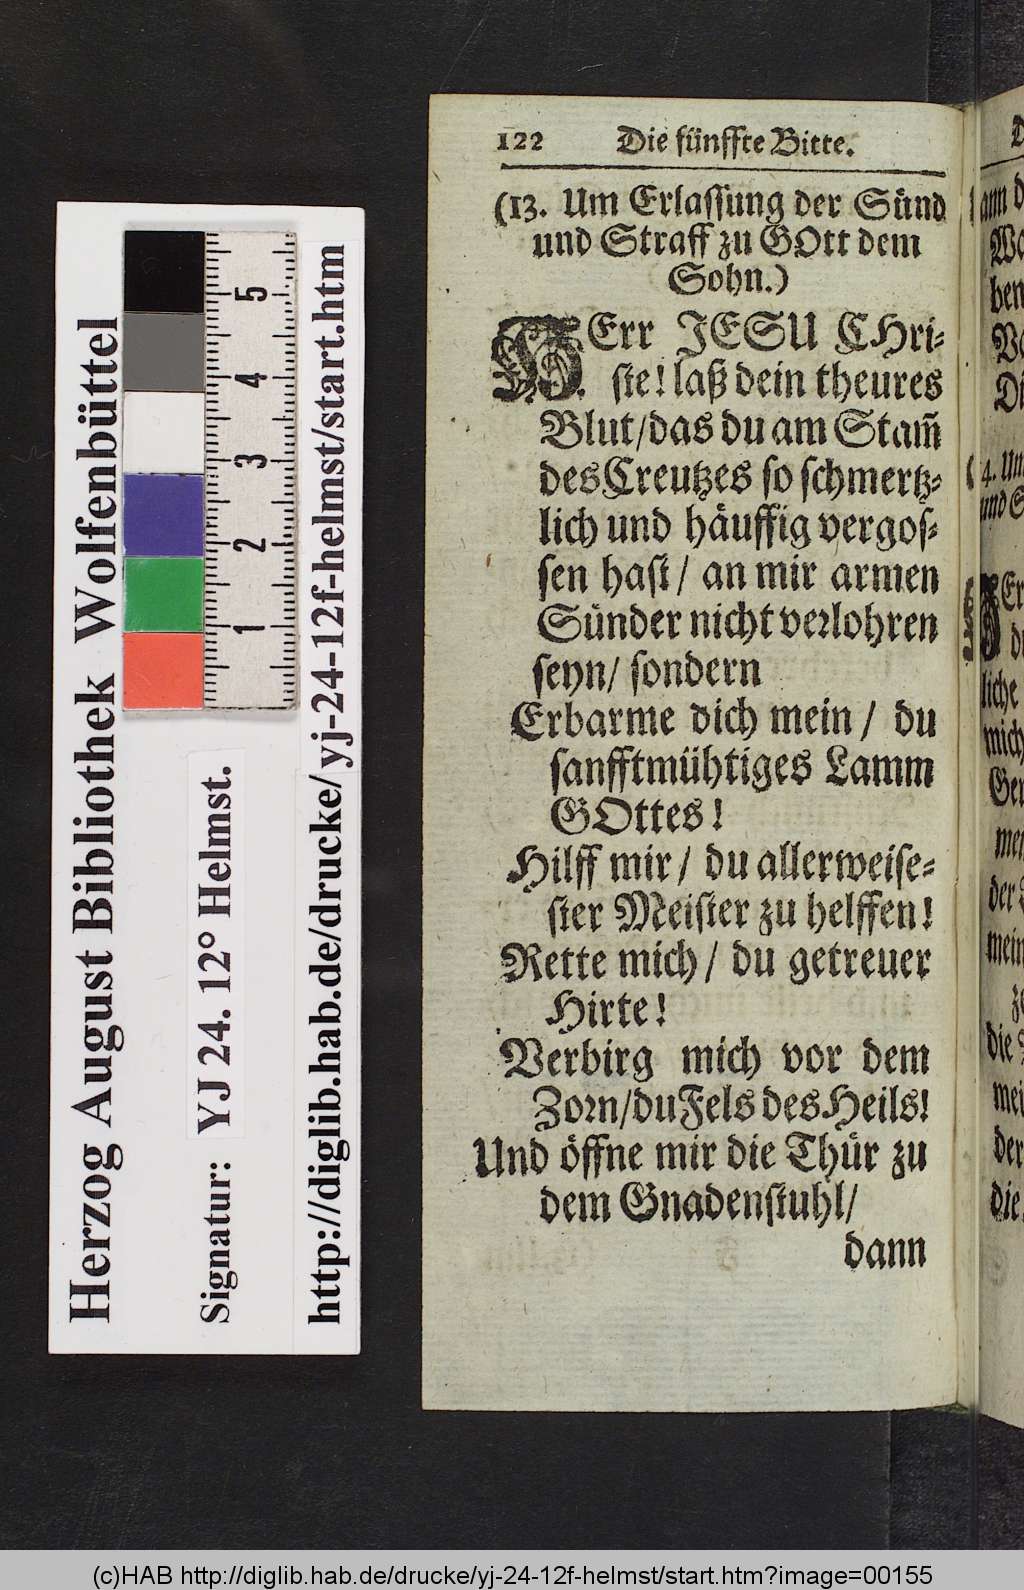 122 Die fünffte Bitte.
(13. Um Erlaſſung der Sünd
und Straff zu GOtt dem
Sohn.)
HErr JESU CHri-
ſte! laß dein theures
Blut/das du am Stam̃
des Creutzes ſo ſchmertz-
lich und häuffig vergoſ-
ſen haſt/ an mir armen
Sünder nicht verlohren
ſeyn/ ſondern
Erbarme dich mein/ du
ſanfftmühtiges Lamm
GOttes!
Hilff mir/ du allerweiſe-
ſter Meiſter zu helffen!
Rette mich/ du getreuer
Hirte!
Verbirg mich vor dem
Zorn/du Fels des Heils!
Und öffne mir die Thür zu
dem Gnadenſtuhl/
dann
Herzog August Bibliothek Wolfenbüttel
Signatur: YJ 24. 12° Helmst.
http://diglib.hab.de/drucke/yj-24-12f-helmst/start.htm
5
4
3
2
1
(c)HAB http://diglib.hab.de/drucke/yj-24-12f-helmst/start.htm?image=00155